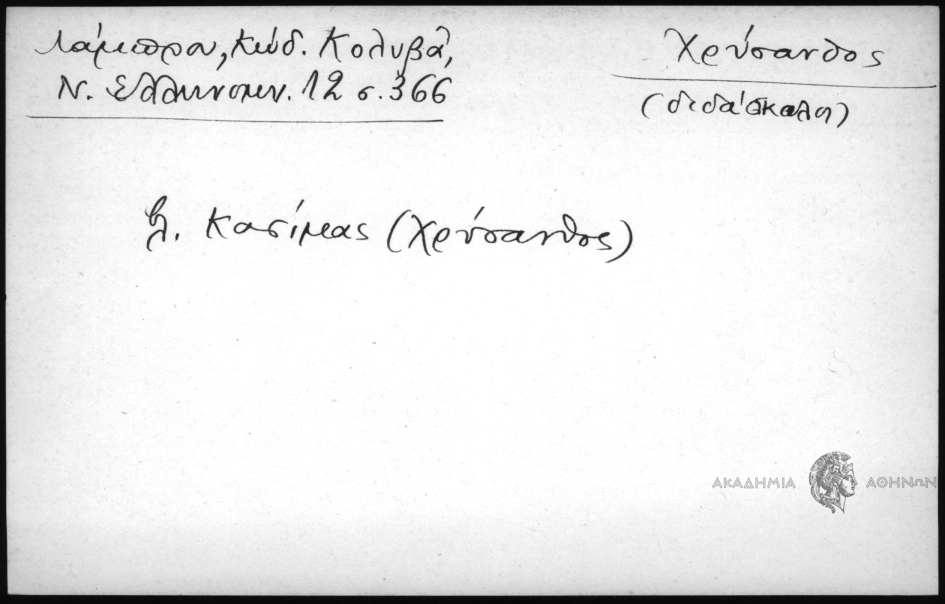 Λάμπρου, Κώδ. Κολυβᾶ,
Ν. Ελληνομν. 12 σ. 366
Χρύσανθος
(διδάσκαλοι)
βλ. Κασίμας (Χρύσανθος)
ΑΚΑΔΗΜΙΑ ΑΘΗΝΩΝ